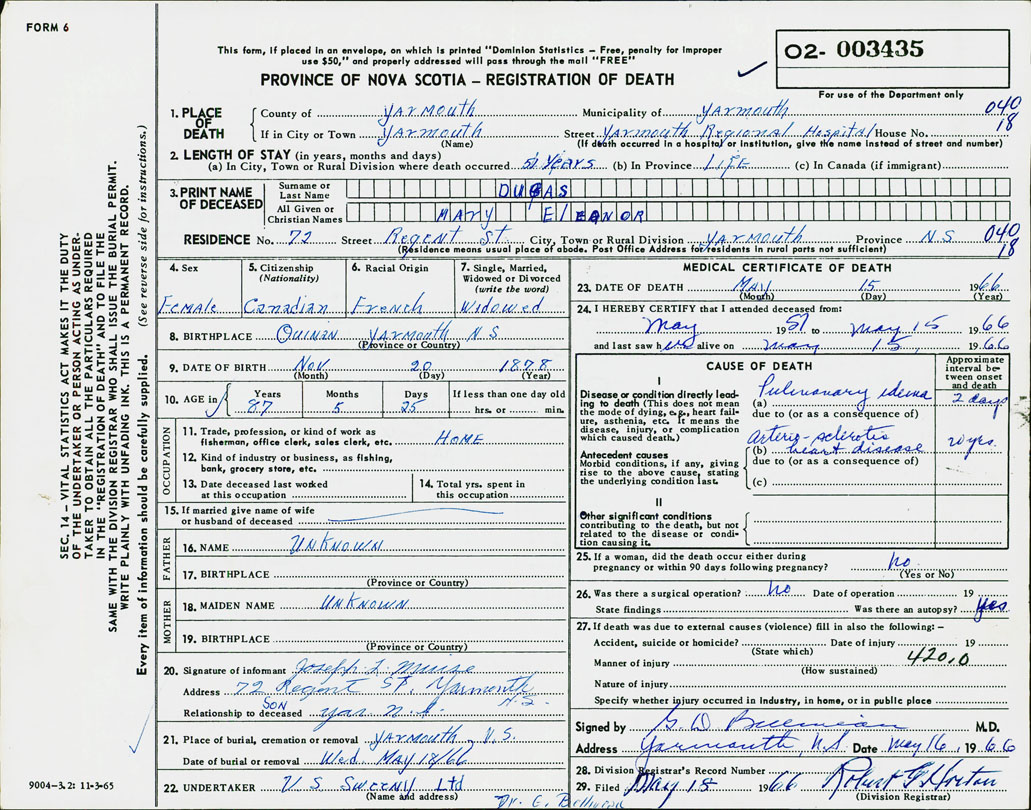 FORM 6
This form, if placed in an envelope, on which is printed "Dominion Statistics – Free, penalty for improper
use $50," and properly addressed will pass through the mail "FREE"
02- 003435
For use of the Department only
PROVINCE OF NOVA SCOTIA – REGISTRATION OF DEATH
1. PLACE OF DEATH County of Yarmouth Municipality of Yarmouth 040
If in City or Town Yarmouth Street Yarmouth Regional Hospital House No. 18
(Name) (If death occurred in a hospital or institution, give the name instead of street and number)
2. LENGTH OF STAY (in years, months and days)
(a) In City, Town or Rural Division where death occurred 51 Years (b) In Province LIFE (c) In Canada (if immigrant)
3. PRINT NAME OF DECEASED Surname or Last Name DUGAS
All Given or Christian Names MARY ELEANOR
RESIDENCE No. 72 Street Regent St. City, Town or Rural Division Yarmouth Province N.S. 040
(Residence means usual place of abode. Post Office Address for residents in rural parts not sufficient) 18
4. Sex Female
5. Citizenship (Nationality) Canadian
6. Racial Origin French
7. Single, Married, Widowed or Divorced (write the word) Widowed
8. BIRTHPLACE Quinan Yarmouth N S
(Province or Country)
9. DATE OF BIRTH Nov 20 1878
(Month) (Day) (Year)
10. AGE in Years 87 Months 5 Days 25 If less than one day old hrs. or min.
OCCUPATION
11. Trade, profession, or kind of work as
fisherman, office clerk, sales clerk, etc. HOME
12. Kind of industry or business, as fishing,
bank, grocery store, etc.
13. Date deceased last worked
at this occupation
14. Total yrs. spent in
this occupation
15. If married give name of wife
or husband of deceased
FATHER
16. NAME UNKNOWN
17. BIRTHPLACE
(Province or Country)
MOTHER
18. MAIDEN NAME UNKNOWN
19. BIRTHPLACE
(Province or Country)
20. Signature of informant Joseph L. Muise
Address 72 Regent St. Yarmouth N.S.
Relationship to deceased SON Yar N.S.
21. Place of burial, cremation or removal Yarmouth, N.S.
Date of burial or removal Wed. May 18/66
22. UNDERTAKER V S Sweeny Ltd
(Name and address)
Dr. E.
MEDICAL CERTIFICATE OF DEATH
23. DATE OF DEATH May 15 1966
(Month) (Day) (Year)
24. I HEREBY CERTIFY that I attended deceased from:
May 1951 to May 15 1966
and last saw her alive on May 15, 1966
CAUSE OF DEATH
Approximate interval between onset and death
I
Disease or condition directly leading to death (This does not mean
the mode of dying, e.g., heart failure, asthenia, etc. It means the
disease, injury, or complication
which caused death.)
(a) Pulmonary edema 2 days
due to (or as a consequence of)
Antecedent causes
Morbid conditions, if any, giving
rise to the above cause, stating
the underlying condition last.
(b) Arterio-sclerotic heart disease 20 yrs.
due to (or as a consequence of)
(c)
II
Other significant conditions
contributing to the death, but not
related to the disease or condition causing it.
25. If a woman, did the death occur either during
pregnancy or within 90 days following pregnancy? No
(Yes or No)
26. Was there a surgical operation? No Date of operation 19
State findings Was there an autopsy? Yes
27. If death was due to external causes (violence) fill in also the following: –
Accident, suicide or homicide? Date of injury 19
(State which)
Manner of injury 420.0
(How sustained)
Nature of injury
Specify whether injury occurred in industry, in home, or in public place
Signed by G. D. M.D.
Address Yarmouth, N.S Date May 16, 1966
28. Division Registrar's Record Number
29. Filed May 18 1966 Robert G Horton
(Division Registrar)
SEC. 14 – VITAL STATISTICS ACT MAKES IT THE DUTY
OF THE UNDERTAKER OR PERSON ACTING AS UNDERTAKER TO OBTAIN ALL THE PARTICULARS REQUIRED
IN THE "REGISTRATION OF DEATH" AND TO FILE THE
SAME WITH THE DIVISION REGISTRAR WHO SHALL ISSUE THE BURIAL PERMIT.
WRITE PLAINLY WITH UNFADING INK. THIS IS A PERMANENT RECORD.
Every item of information should be carefully supplied. (See reverse side for instructions.)
9004-3.2: 11-3-65